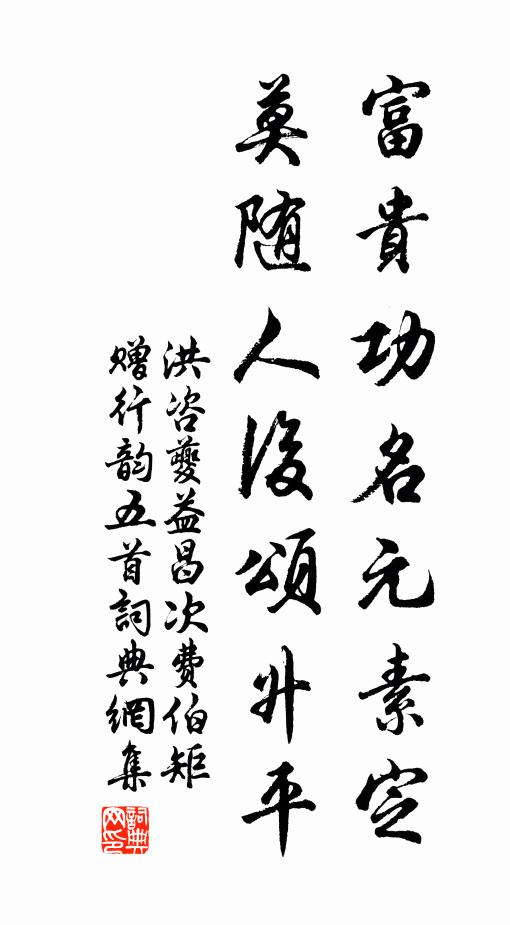 富貴功名元素定
莫随人後頌升平
洪咨夔益昌次費伯矩
贈行韵五首詞典網集
詞典网印